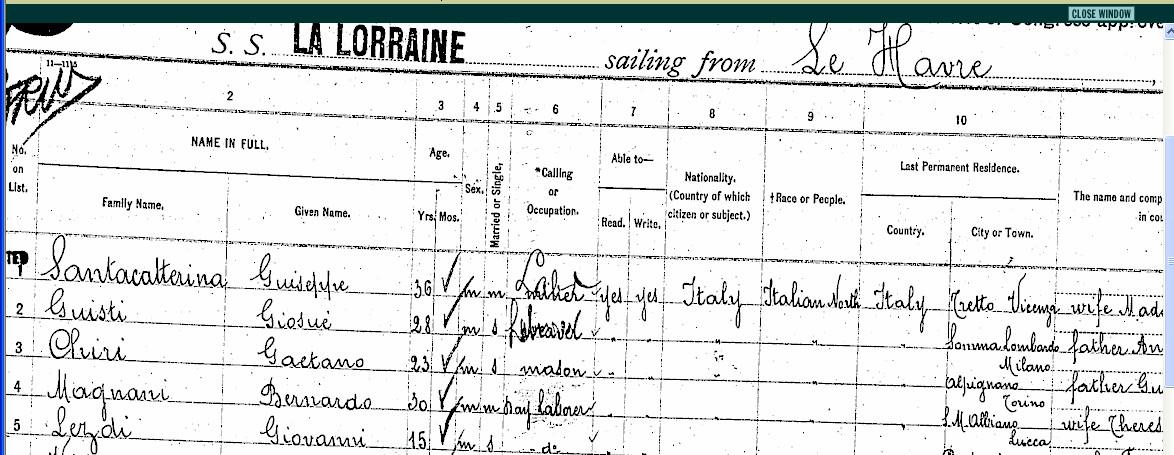 CLOSE WINDOW
S. S. LA LORRAINE sailing from Le Havre
11—1115
2 3 4 5 6 7 8 9 10
No. on List.
NAME IN FULL.
Family Name.
Given Name.
Age.
Yrs. Mos.
Sex.
Married or Single,
*Calling or Occupation.
Able to—
Read. Write.
Nationality. (Country of which citizen or subject.)
†Race or People.
Last Permanent Residence.
Country.
City or Town.
The name and comp
in cou
1 Santacatterina Guiseppe 36 m m yes yes Italy Italian North Italy Tretto Vicenza wife Mad
2 Guisti Giosué 28 m s " " " " " Somma Lombardo Milano father An
3 Chiri Gaetano 23 m s mason " " " " " Alpignano Torino father Gu
4 Magnani Bernardo 30 m m Day laborer " " " " " S.M. Albiano Lucca wife Theres
5 Giovanni 15 m s d°